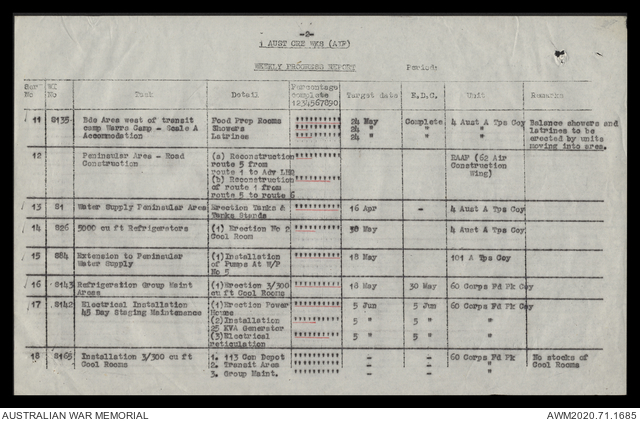 -2-
1 AUST CRE WKS (AIF)
WEEKLY PROGRESS REPORT Period:
Ser No WI No Task Detail Percentage complete 1234567890 Target date E.D.C. Unit Remarks
11 8135 Bde Area west of transit Food Prep Rooms 24 May Complete 4 Aust A Tps Coy Balance showers and
camp Warra Camp - Scale A Showers 24 " " " latrines to be
Accommodation Latrines 24 " " " erected by units
moving into area.
12 Peninsular Area - Road (a) Reconstruction RAAF (62 Air
Construction route 5 from Construction
route 1 to Adv LHQ Wing)
(b) Reconstruction
of route 1 from
route 5 to route 6
13 81 Water Supply Peninsular Area Erection Tanks & 16 Apr - 4 Aust A Tps Coy
Tanks Stands
14 826 5000 cu ft Refrigerators (1) Erection No 2 30 May 4 Aust A Tps Coy
Cool Room
15 884 Extension to Peninsular (1) Installation 18 May 101 A Tps Coy
Water Supply of Pumps At W/P
No 5
16 8143 Refrigeration Group Maint (1) Erection 3/300 18 May 30 May 60 Corps Fd Pk Coy
Area cu ft Cool Rooms
17 8142 Electrical Installation (1) Erection Power 5 Jun 5 Jun 60 Corps Fd Pk Coy
45 Day Staging Maintenance House
(2) Installation 5 " 5 " "
25 KVA Generator
(3) Electrical 5 " 5 " "
Reticulation
18 8165 Installation 3/300 cu ft 1. 113 Con Depot - - 60 Corps Fd Pk No stocks of
Cool Rooms 2. Transit Area - - " Cool Rooms
3. Group Maint. - - "
AUSTRALIAN WAR MEMORIAL AWM2020.71.1685